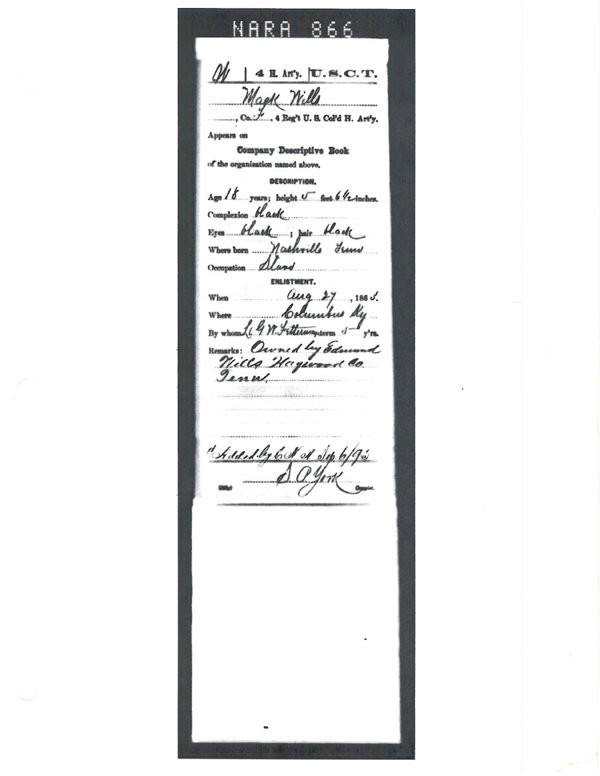 NARA 866
W | 4 H. Art'y. | U.S.C.T.
Mack Wills
, Co. F, 4 Reg't U. S. Col'd H. Art'y.
Appears on
Company Descriptive Book
of the organization named above.
DESCRIPTION.
Age 18 years; height 5 feet 6 1/2 inches.
Complexion black
Eyes black ; hair black
Where born Nashville Tenn
Occupation Slave
ENLISTMENT.
When Aug 27 , 186
Where Columbus Ky
By whom Lt G W term 5 y'rs.
Remarks: Owned by Edmund
Wills Haywood Co.
Tenn.
by
York
Copyist.